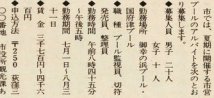 市では、夏期に開催する市営
プールのアルバイトを次のとお
り募集します。
◆募集人員 男子 二十人
女子 八人
◆勤務場所 御幸の浜プール・
国府津プール
◆職種 プール監視員、切符
発売員、整理員
◆勤務時間 午前八時四十五分
～午後五時
◆勤務期間 七月一日～八月三
十一日
◆賃金 三千七百円～四千六
百円
◆申込方法 〒250 荻窪三
〇〇番地 市役所観光課あ